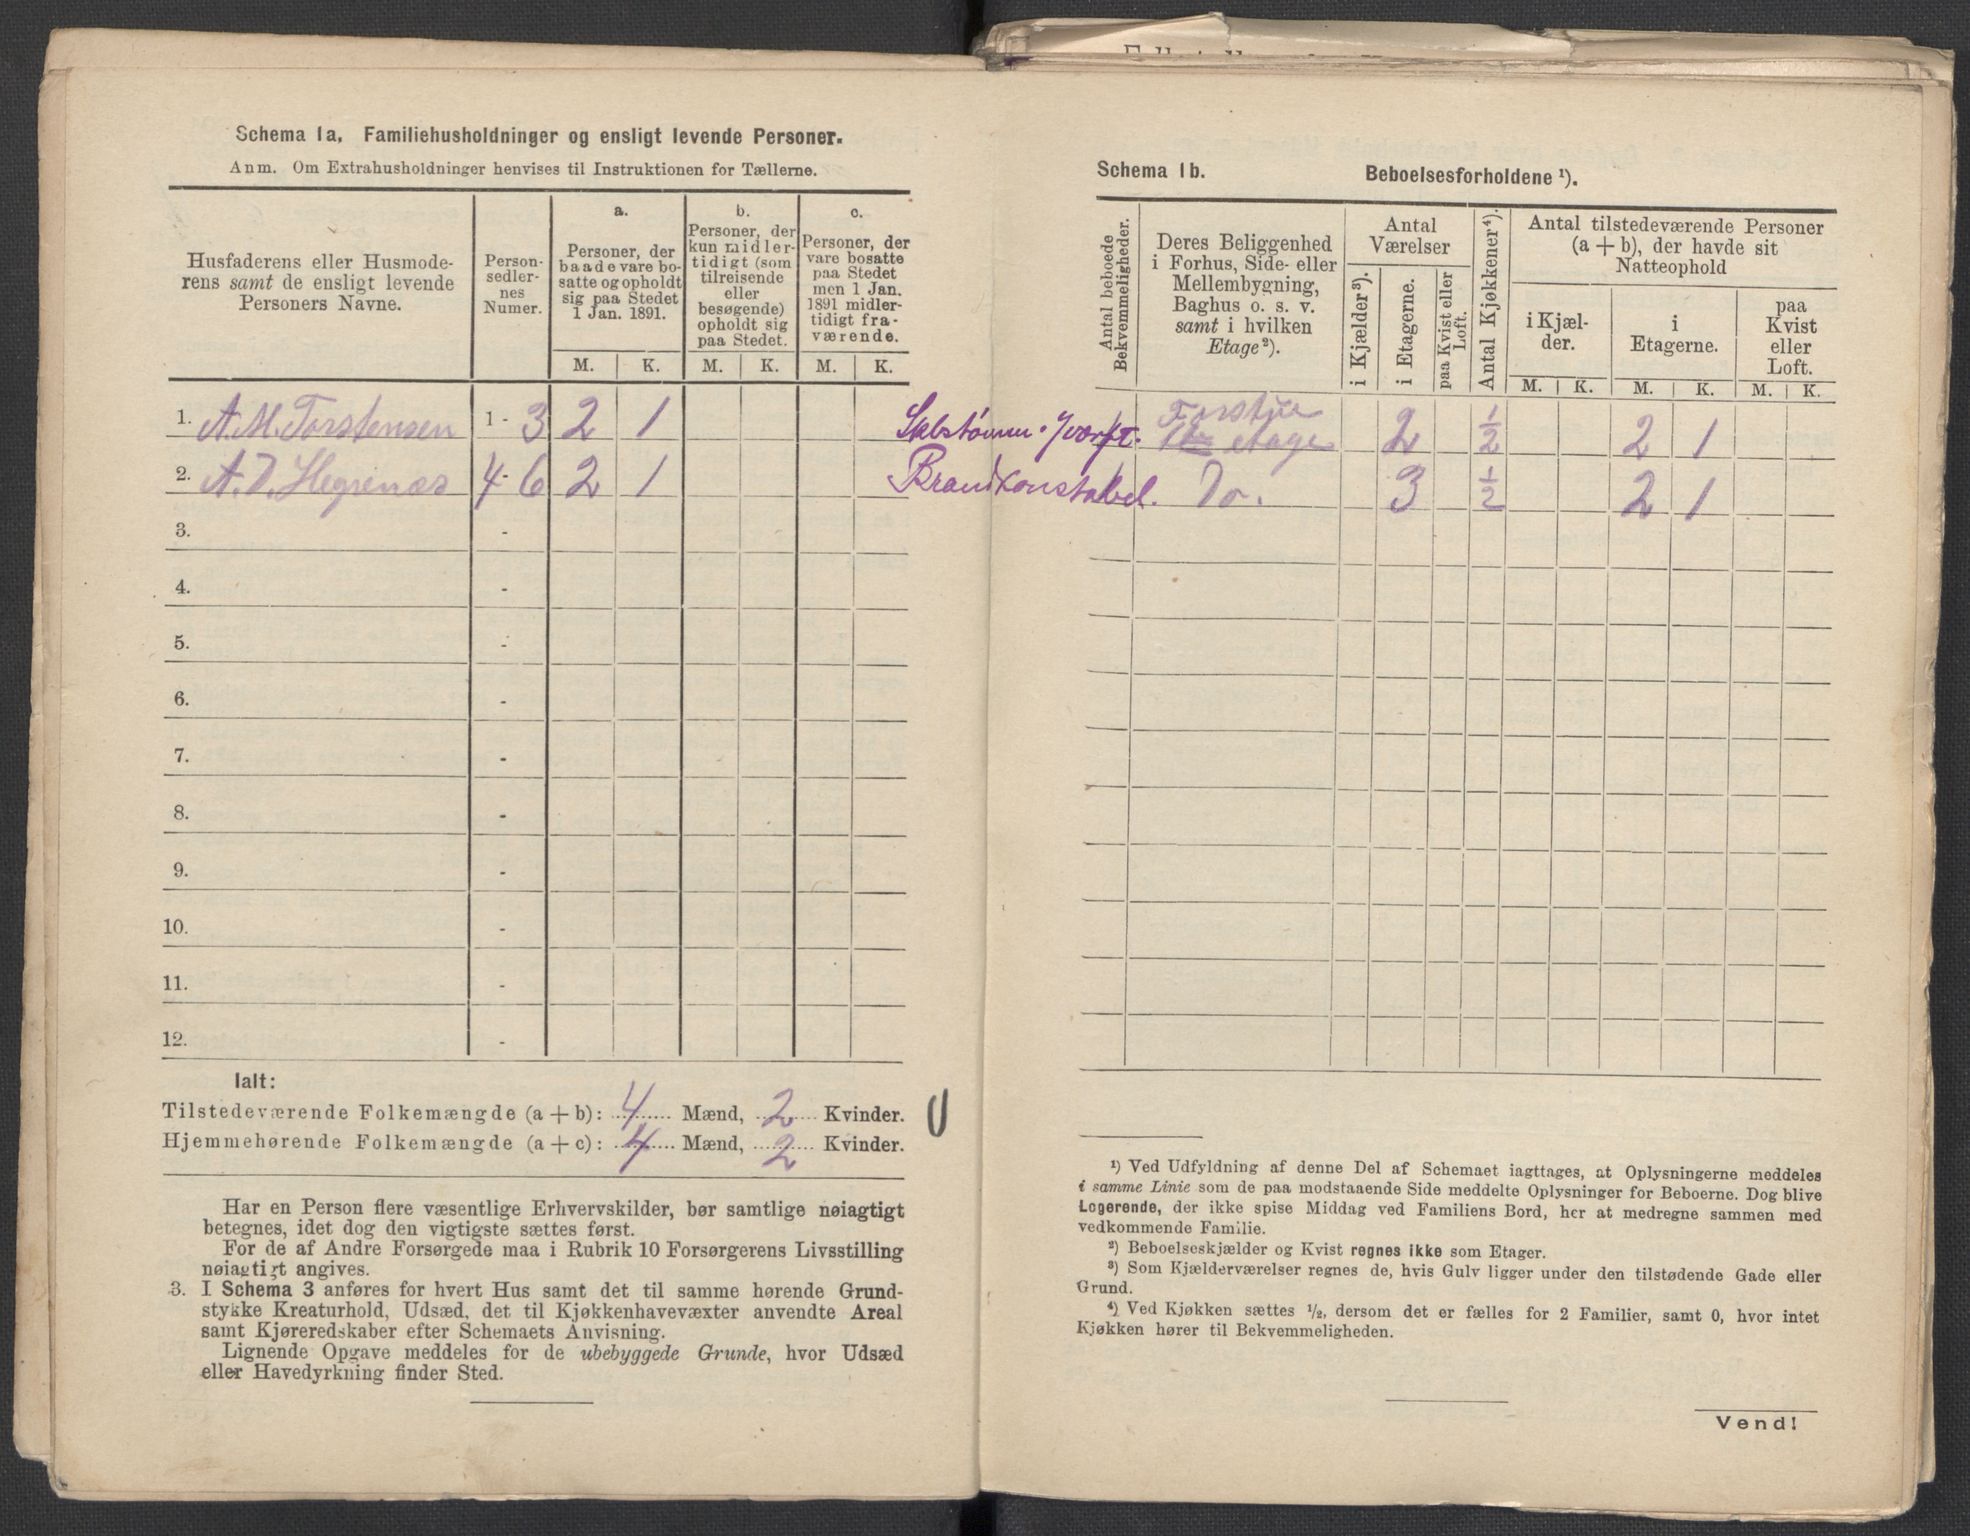 Schema 1a. Familiehusholdninger og ensligt levende Personer.
Anm. Om Extrahusholdninger henvises til Instruktionen for Tællerne.
Husfaderens eller Husmode-
rens samt de ensligt levende
Personers Navne.
Person-
sedler-
nes
Numer.
a.
Personer, der
baade vare bo-
satte og opholdt
sig paa Stedet
1 Jan. 1891.
b.
Personer, der
kun midler-
tidigt (som
tilreisende
eller
besøgende)
opholdt sig
paa Stedet.
c.
Personer, der
vare bosatte
paa Stedet
men 1 Jan.
1891 midler-
tidigt fra-
værende.
M. K. M. K. M. K.
1. A. M. Torstensen 1 - 3 2 1
2. A. D. Hegrenæs 4 - 6 2 1
3. -
4. -
5. -
6. -
7. -
8. -
9. -
10. -
11. -
12. -
Ialt:
Tilstedeværende Folkemængde (a + b): 4 Mænd, 2 Kvinder.
Hjemmehørende Folkemængde (a + c): 4 Mænd, 2 Kvinder.
Har en Person flere væsentlige Erhvervskilder, bør samtlige nøiagtigt
betegnes, idet dog den vigtigste sættes først.
For de af Andre Forsørgede maa i Rubrik 10 Forsørgerens Livsstilling
nøiagtigt angives.
3. I Schema 3 anføres for hvert Hus samt det til samme hørende Grund-
stykke Kreaturhold, Udsæd, det til Kjøkkenhavevæxter anvendte Areal
samt Kjøreredskaber efter Schemaets Anvisning.
Lignende Opgave meddeles for de ubebyggede Grunde, hvor Udsæd
eller Havedyrkning finder Sted.
Schema 1b. Beboelsesforholdene ¹).
Antal beboede
Bekvemmeligheder.
Deres Beliggenhed
i Forhus, Side- eller
Mellembygning,
Baghus o. s. v.
samt i hvilken
Etage²).
Antal
Værelser
i Kjælder³).
i Etagerne.
paa Kvist eller
Loft.
Antal Kjøkkener⁴).
Antal tilstedeværende Personer
(a + b), der havde sit
Natteophold
i Kjæl-
der.
i
Etagerne.
paa
Kvist
eller
Loft.
M. K. M. K. M. K.
etage 2 ½ 2 1
Brandkonstabel. Do. 3 ½ 2 1
¹) Ved Udfyldning af denne Del af Schemaet iagttages, at Oplysningerne meddeles
i samme Linie som de paa modstaaende Side meddelte Oplysninger for Beboerne. Dog blive
Logerende, der ikke spise Middag ved Familiens Bord, her at medregne sammen med
vedkommende Familie.
²) Beboelseskjælder og Kvist regnes ikke som Etager.
³) Som Kjælderværelser regnes de, hvis Gulv ligger under den tilstødende Gade eller
Grund.
⁴) Ved Kjøkken sættes ½, dersom det er fælles for 2 Familier, samt 0, hvor intet
Kjøkken hører til Bekvemmeligheden.
Vend!